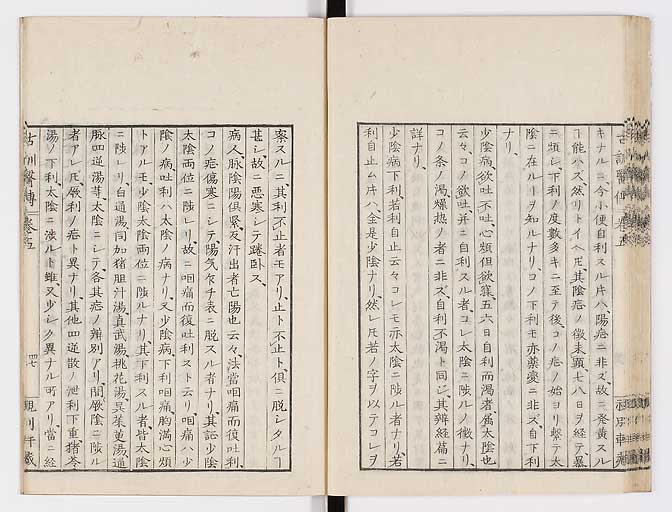 キナルニ今小便自利スル片ハ陽症ニ非ズ、故ニ発黄スル
ヿ能ハズ然リトイヘ𪜈其陰症ノ徴未顕七八日ヲ経テ暴
ニ煩シ下利ノ度數多キニ至テ後コノ症ノ始ヨリ繋テ太
陰ニ在ルヿヲ知ルナリコノ下利モ亦薬毒ニ非ズ、自下利
ナリ、
少陰病欲吐不吐、心煩但欲寐、五六日自利而渇者、属太陰也
云々、コノ欲吐并ニ自利スル者、コレ太陰ニ陟ルノ徴ナリ、
コノ条ノ渇燥熱ノ者ニ非ズ自利不渇ト同ジ、其辨経篇ニ
詳ナリ、
少陰病下利若利自止云々コレモ亦太陰ニ陟ル者ナリ、若
利自止ム片ハ全是少陰ナリ、然レ𪜈若ノ字ヲ以テコレヲ
察スルニ其利不止者モアリ、止ト不止ト倶ニ脱シタルヿ
甚シ故ニ悪寒シテ踡卧ス、
病人脉陰陽倶緊、反汗出者亡陽也云々、法當咽痛而復吐利、
コノ症傷寒ニシテ陽気乍チ表ニ脱スル者ナリ、其証少陰
太陰両位ニ陟レリ、故ニ咽痛而復吐利スト云リ咽痛ハ少
陰ノ病吐利ハ太陰ノ病ナリ、又少陰病、下利咽痛、胸満心煩
トアルモ少陰太陰両位ニ陟ルナリ、其下利スル者皆太陰
ニ陟レリ、白通湯、同加猪胆汁湯、真武湯、桃花湯、呉茱萸湯、通
脉四逆湯、等太陰ニシテ、各其症ノ辨別アリ、間厥陰ニ陟ル
者アレ𪜈厥利ノ症ト異ナリ、其他四逆散ノ泄利下重猪苓
湯ノ下利、太陰ニ渉ルト雖、又少シク異ナル所アリ、當ニ経
古訓醫傳 巻五 四七